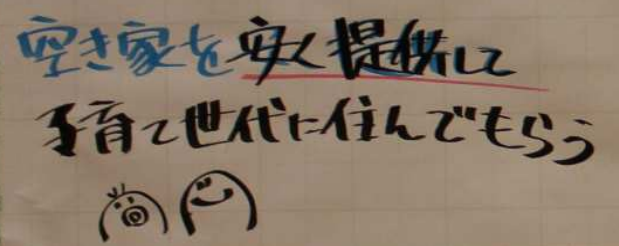 空き家を安く提供して
子育て世代に住んでもらう